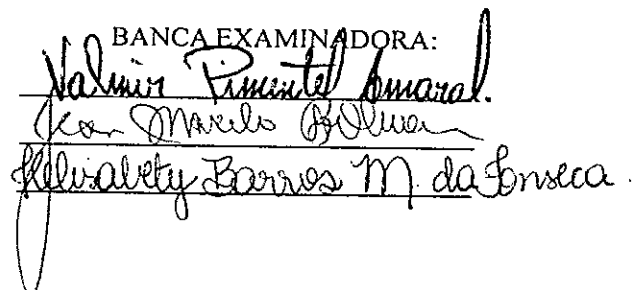 BANCA EXAMINADORA:
Valmir Pimentel Amaral.
Jean Marcelo
Barros M. da Fonseca.